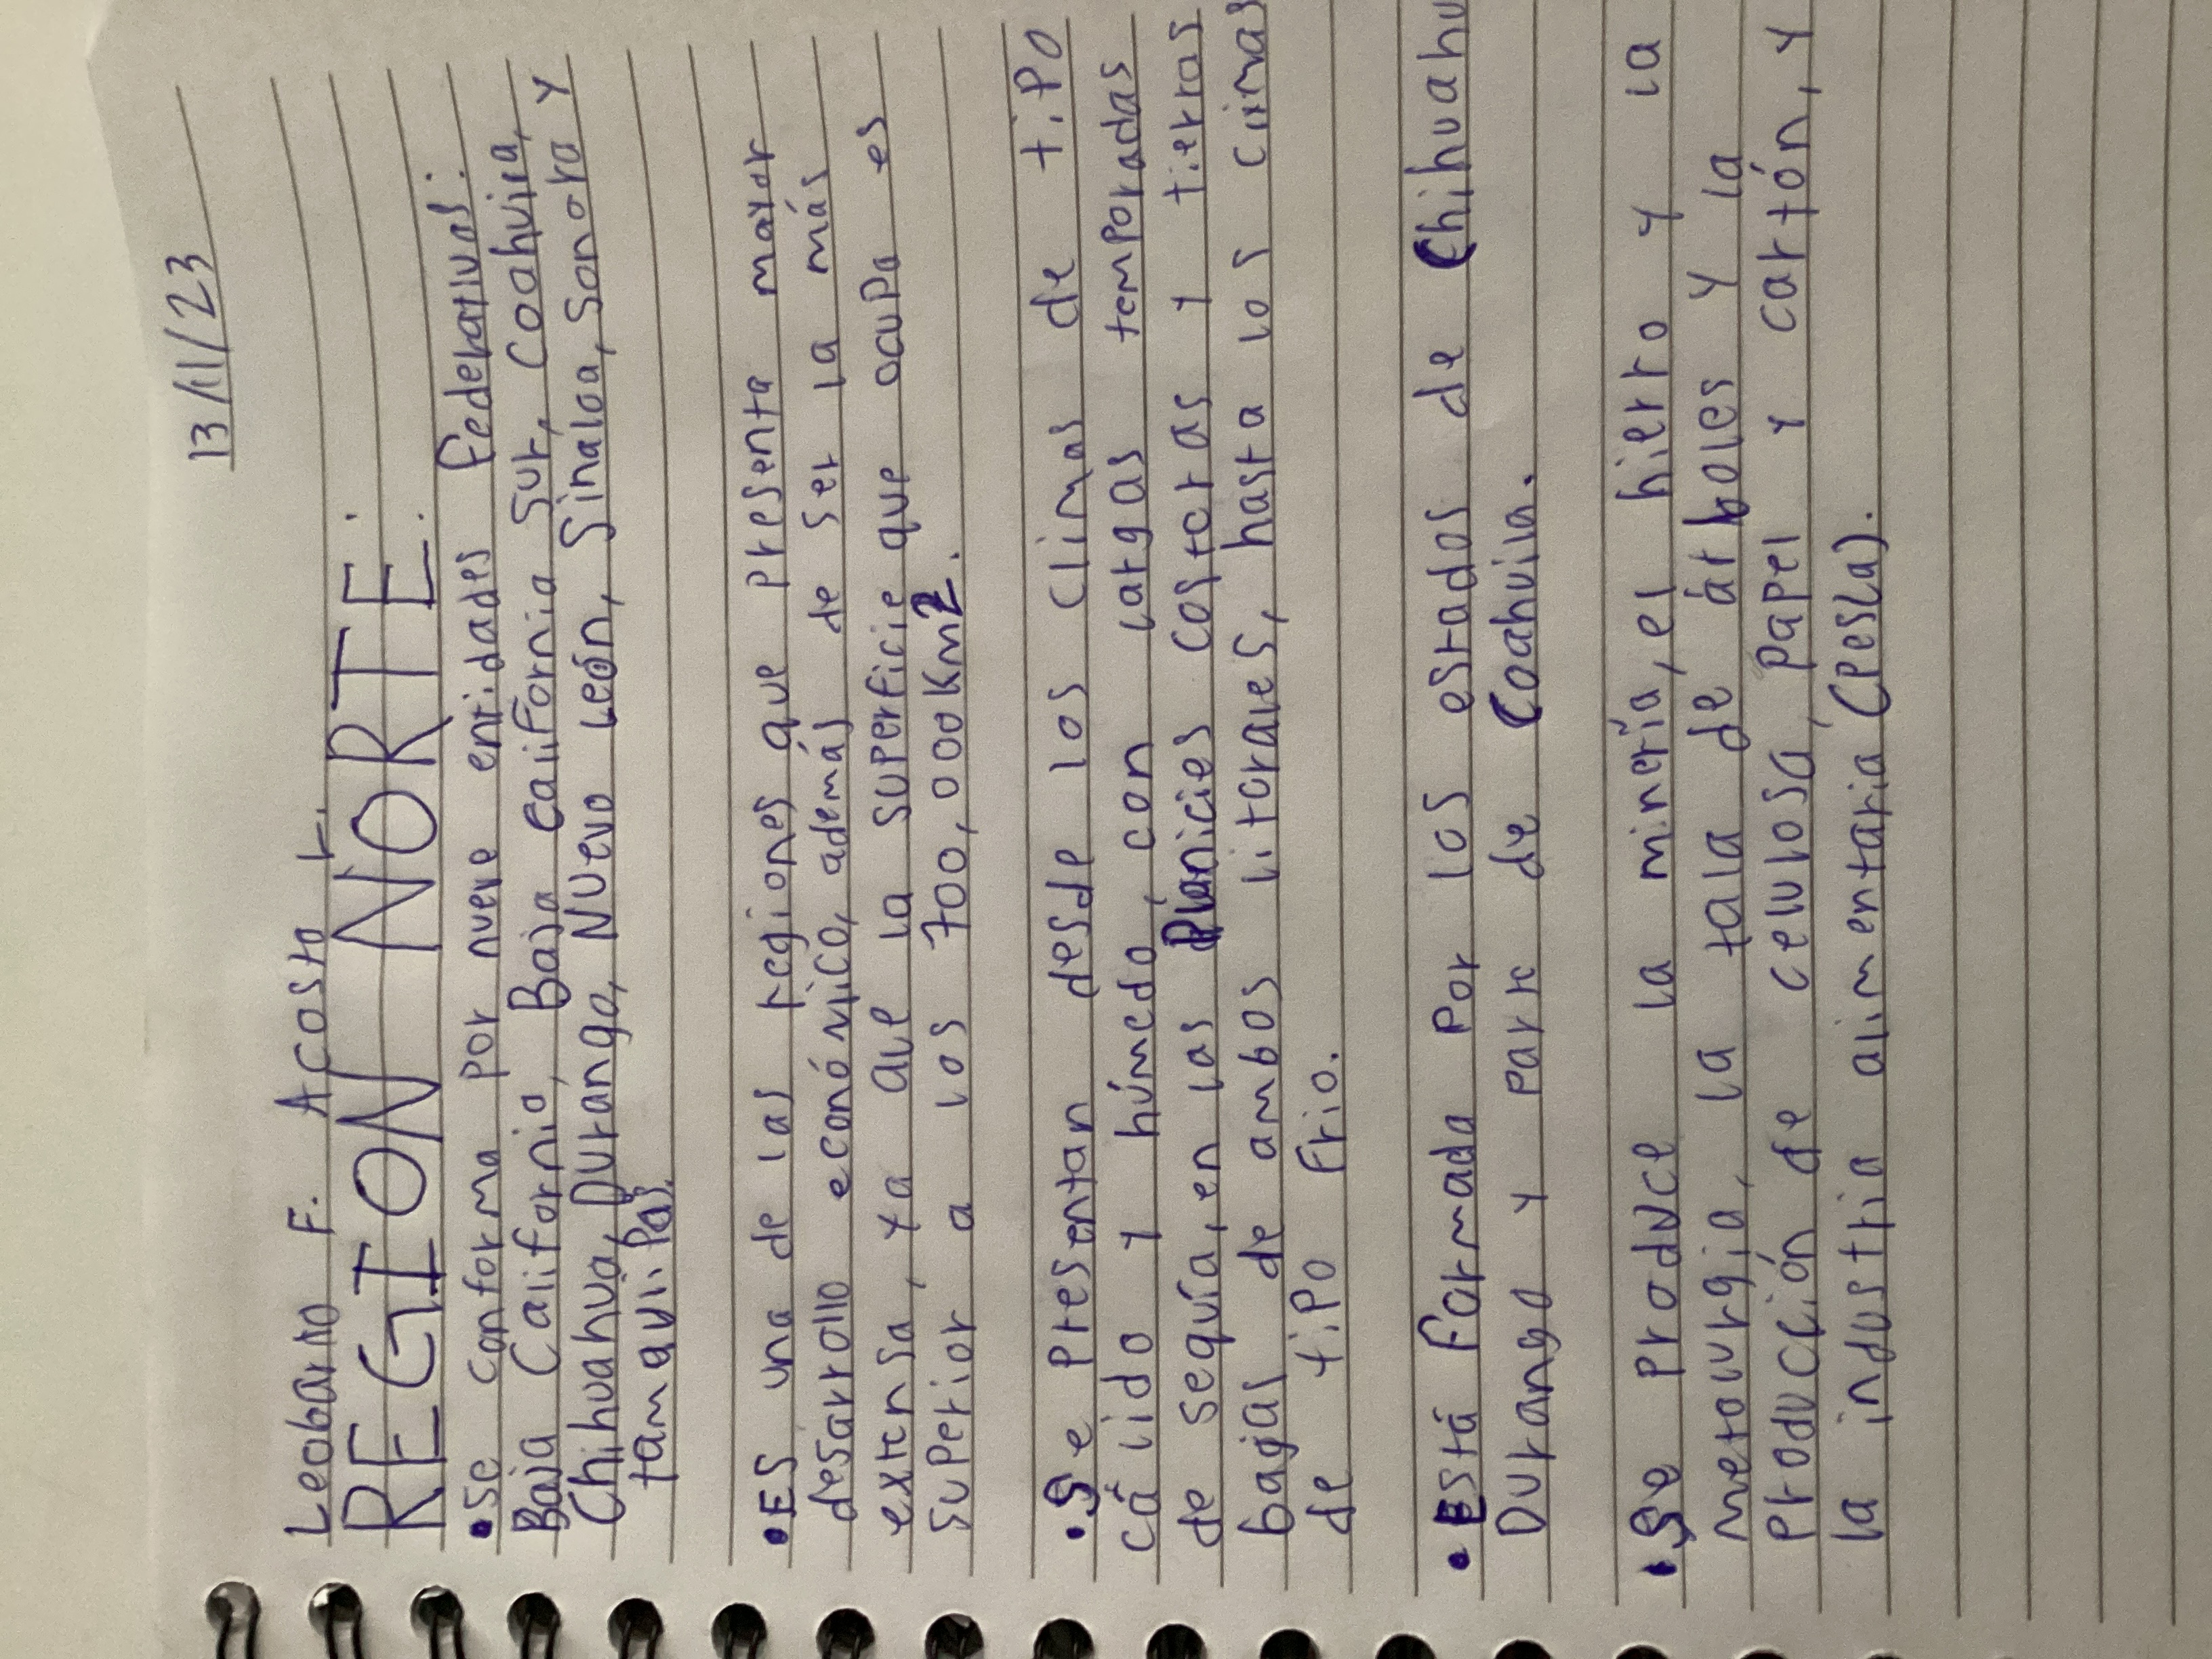 13/11/23
Leobardo F. Acosta L.
REGION NORTE:
•Se conforma por nueve entidades Federativas:
Baja California, Baja California Sur, Coahuila,
Chihuahua, Durango, Nuevo León, Sinaloa, Sonora y
tamaulipas.
•ES una de las regiones que presenta mayor
desarrollo económico, además de ser la más
extensa, ya que la superficie que ocupa es
superior a los 700,000 Km2.
•Se presentan desde los climas de tipo
cálido y húmedo, con largas temporadas
de sequía, en las Planicies costeras y tierras
bajas de ambos litorales, hasta los climas
de tipo frio.
•Está formada por los estados de Chihuahu
Durango y parte de Coahuila.
•Se produce la minería, el hierro y la
metalurgia, la tala de árboles y la
producción de celulosa, papel y cartón, y
la industria alimentaria (pesca).